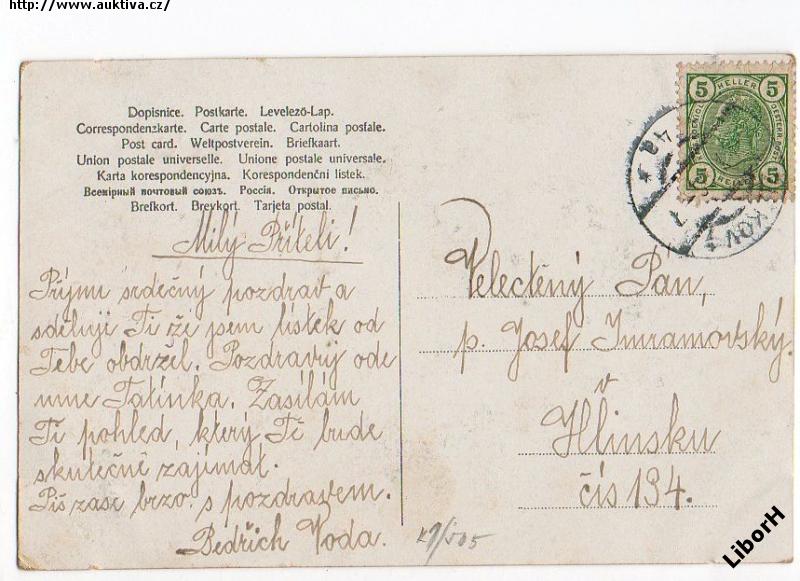 http://www.auktiva.cz/
Dopisnice. Postkarte. Levelező-Lap.
Correspondenzkarte. Carte postale. Cartolina postale.
Post card. Weltpostverein. Briefkaart.
Union postale universelle. Unione postale universale.
Karta korespondencyjna. Korespondenční lístek.
Всемірный почтовый союзъ. Россія. Открытое письмо.
Brefkort. Brevkort. Tarjeta postal.
Milý Příteli!
Příjmi srdečný pozdrav a
sděluji Ti že jsem lístek od
Tebe obdržel. Pozdravuj ode
mne Tatínka. Zasílám
Ti pohled, který Tě bude
skutečně zajímat.
Piš zase brzo. s pozdravem.
Bedřich Voda.
5 HELLER 5
5 HELLER 5
Velectěný Pán,
p. Josef Imramovský.
v
Hlinsku
čís 134.
LiborH